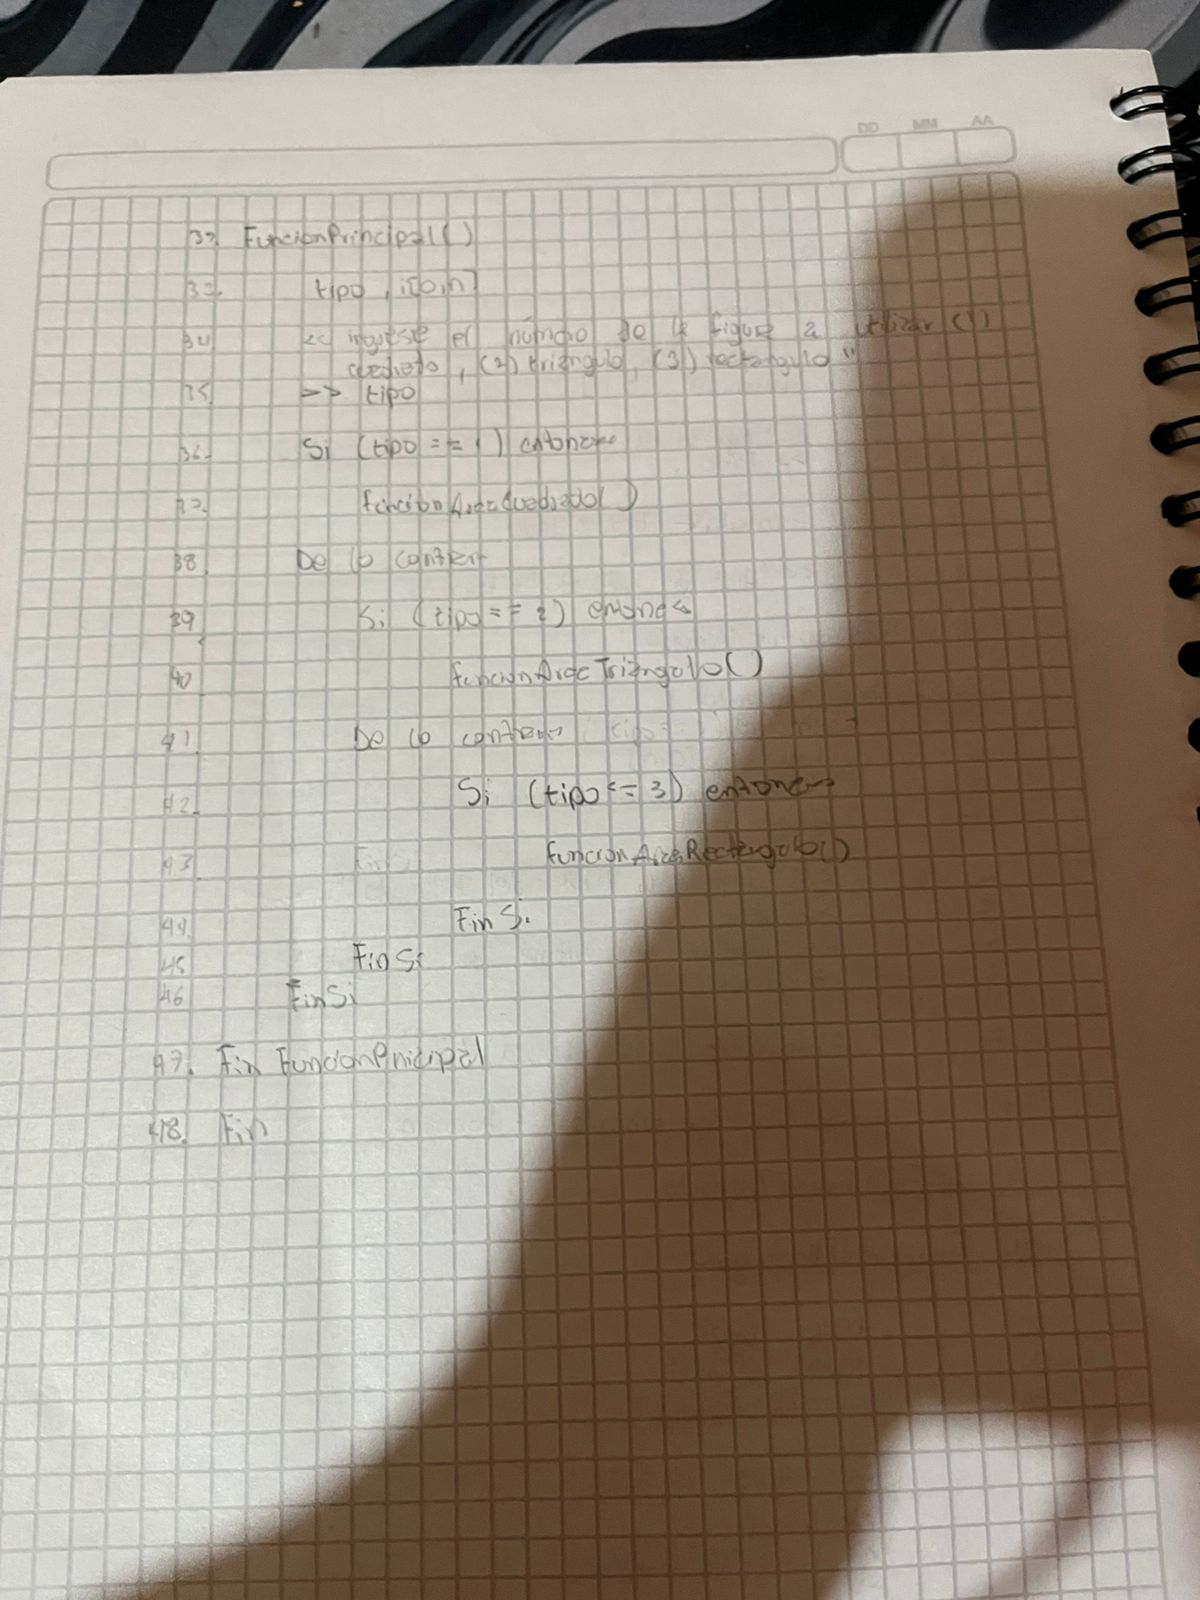 DD MM AA
32. FuncionPrincipal()
33. tipo, i[0,n]
34 << ingrese el número de la figura a utilizar (1)
cuadrado, (2) triángulo, (3) rectangulo"
35 >> tipo
36. Si (tipo == 1) entonces
37. funciónAreaCuadrado()
38. De lo contrar
39 Si (tipo == 2) entonces
40 funcionAreaTriángulo()
41 De lo contrario tipo
42. Si (tipo == 3) entonces
43 Fin funcionAreaRectangulo()
44. Fin Si
45 Fin Si
46 FinSi
47. Fin FuncionPricipal
48. Fin